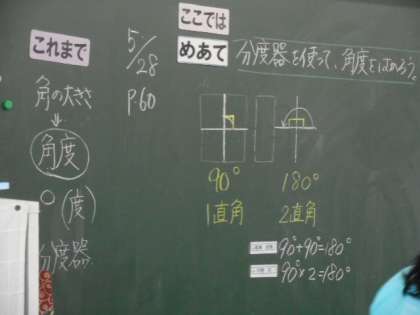 これまで
角の大きさ
↓
角度
○(度)
分度器
5/28
P.60
ここでは
めあて
分度器を使って、角度をはかろう
90° 180°
1直角 2直角
90°+90°=180°
90°×2=180°